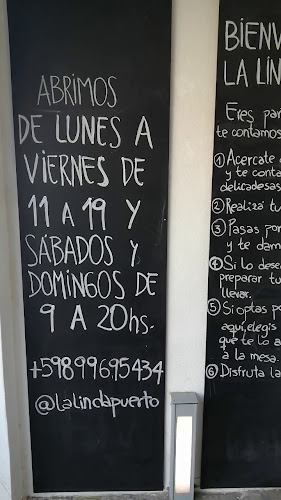 ABRIMOS
DE LUNES A
VIERNES DE
11 A 19 Y
SÁBADOS Y
DOMINGOS DE
9 A 20hs.
+59899695434
@lalindapuerto
BIENV
LA LIN
Eres par
te contamos
① Acercate
y te conta
delicadesas
② Realizá tu
③ Pasas por
y te dam
④ Si lo dese
preparar tu
llevar.
⑤ Si optas po
aquí, elegis
que te lo a
a la mesa.
⑥ Disfruta la